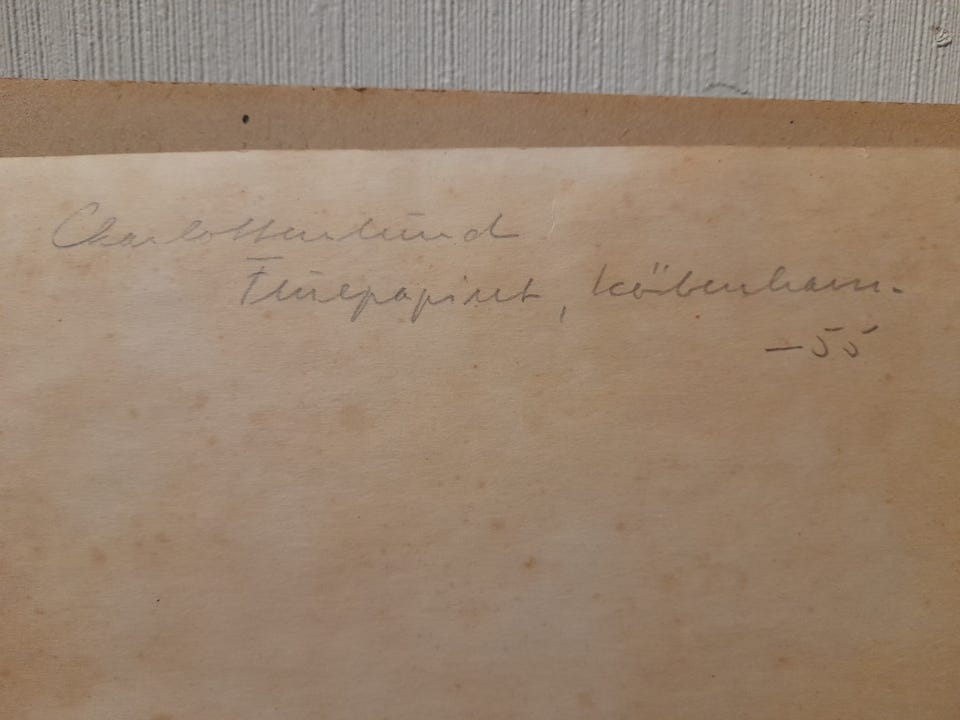 Charlottenlund
Fluepapiret, Köbenhavn.
–55